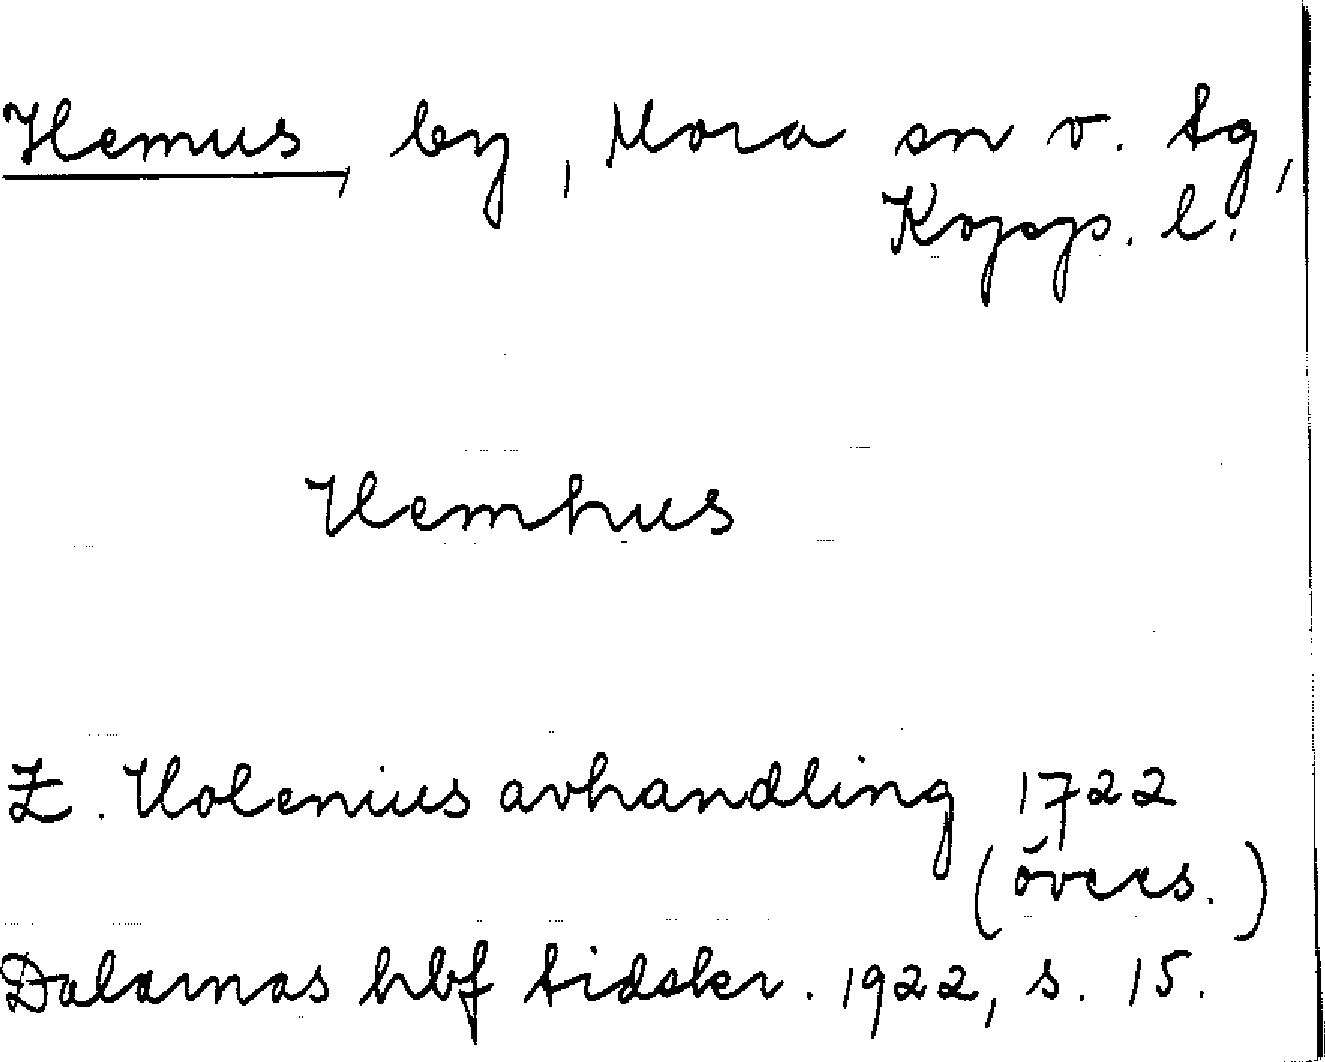 Hemus, by, Mora sn v. tg,
Kopps. l.
Hemhus
E. Holenius avhandling 1722
(övers.)
Dalarnas hbf tidskr. 1922, s. 15.